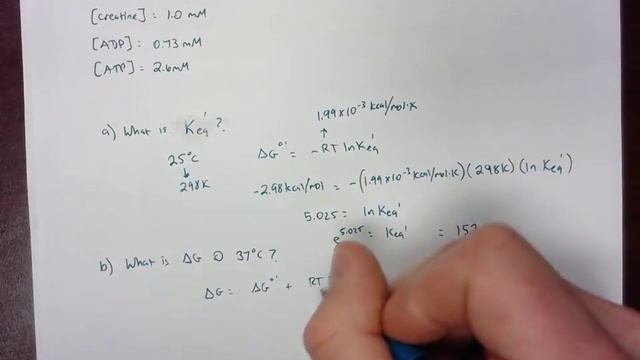 [creatine] = 1.0 mM
[ADP] = 0.73 mM
[ATP] = 2.6 mM
1.99 x 10⁻³ kcal/mol·K
a) What is Keq'?
↑
25°C
ΔG°' = -RT ln Keq'
↓
298K
-2.98 kcal/mol = -(1.99 x 10⁻³ kcal/mol·K)(298K)(ln Keq')
5.025 = ln Keq'
e^5.025 = Keq' = 152
b) What is ΔG @ 37°C?
ΔG = ΔG°' + RT